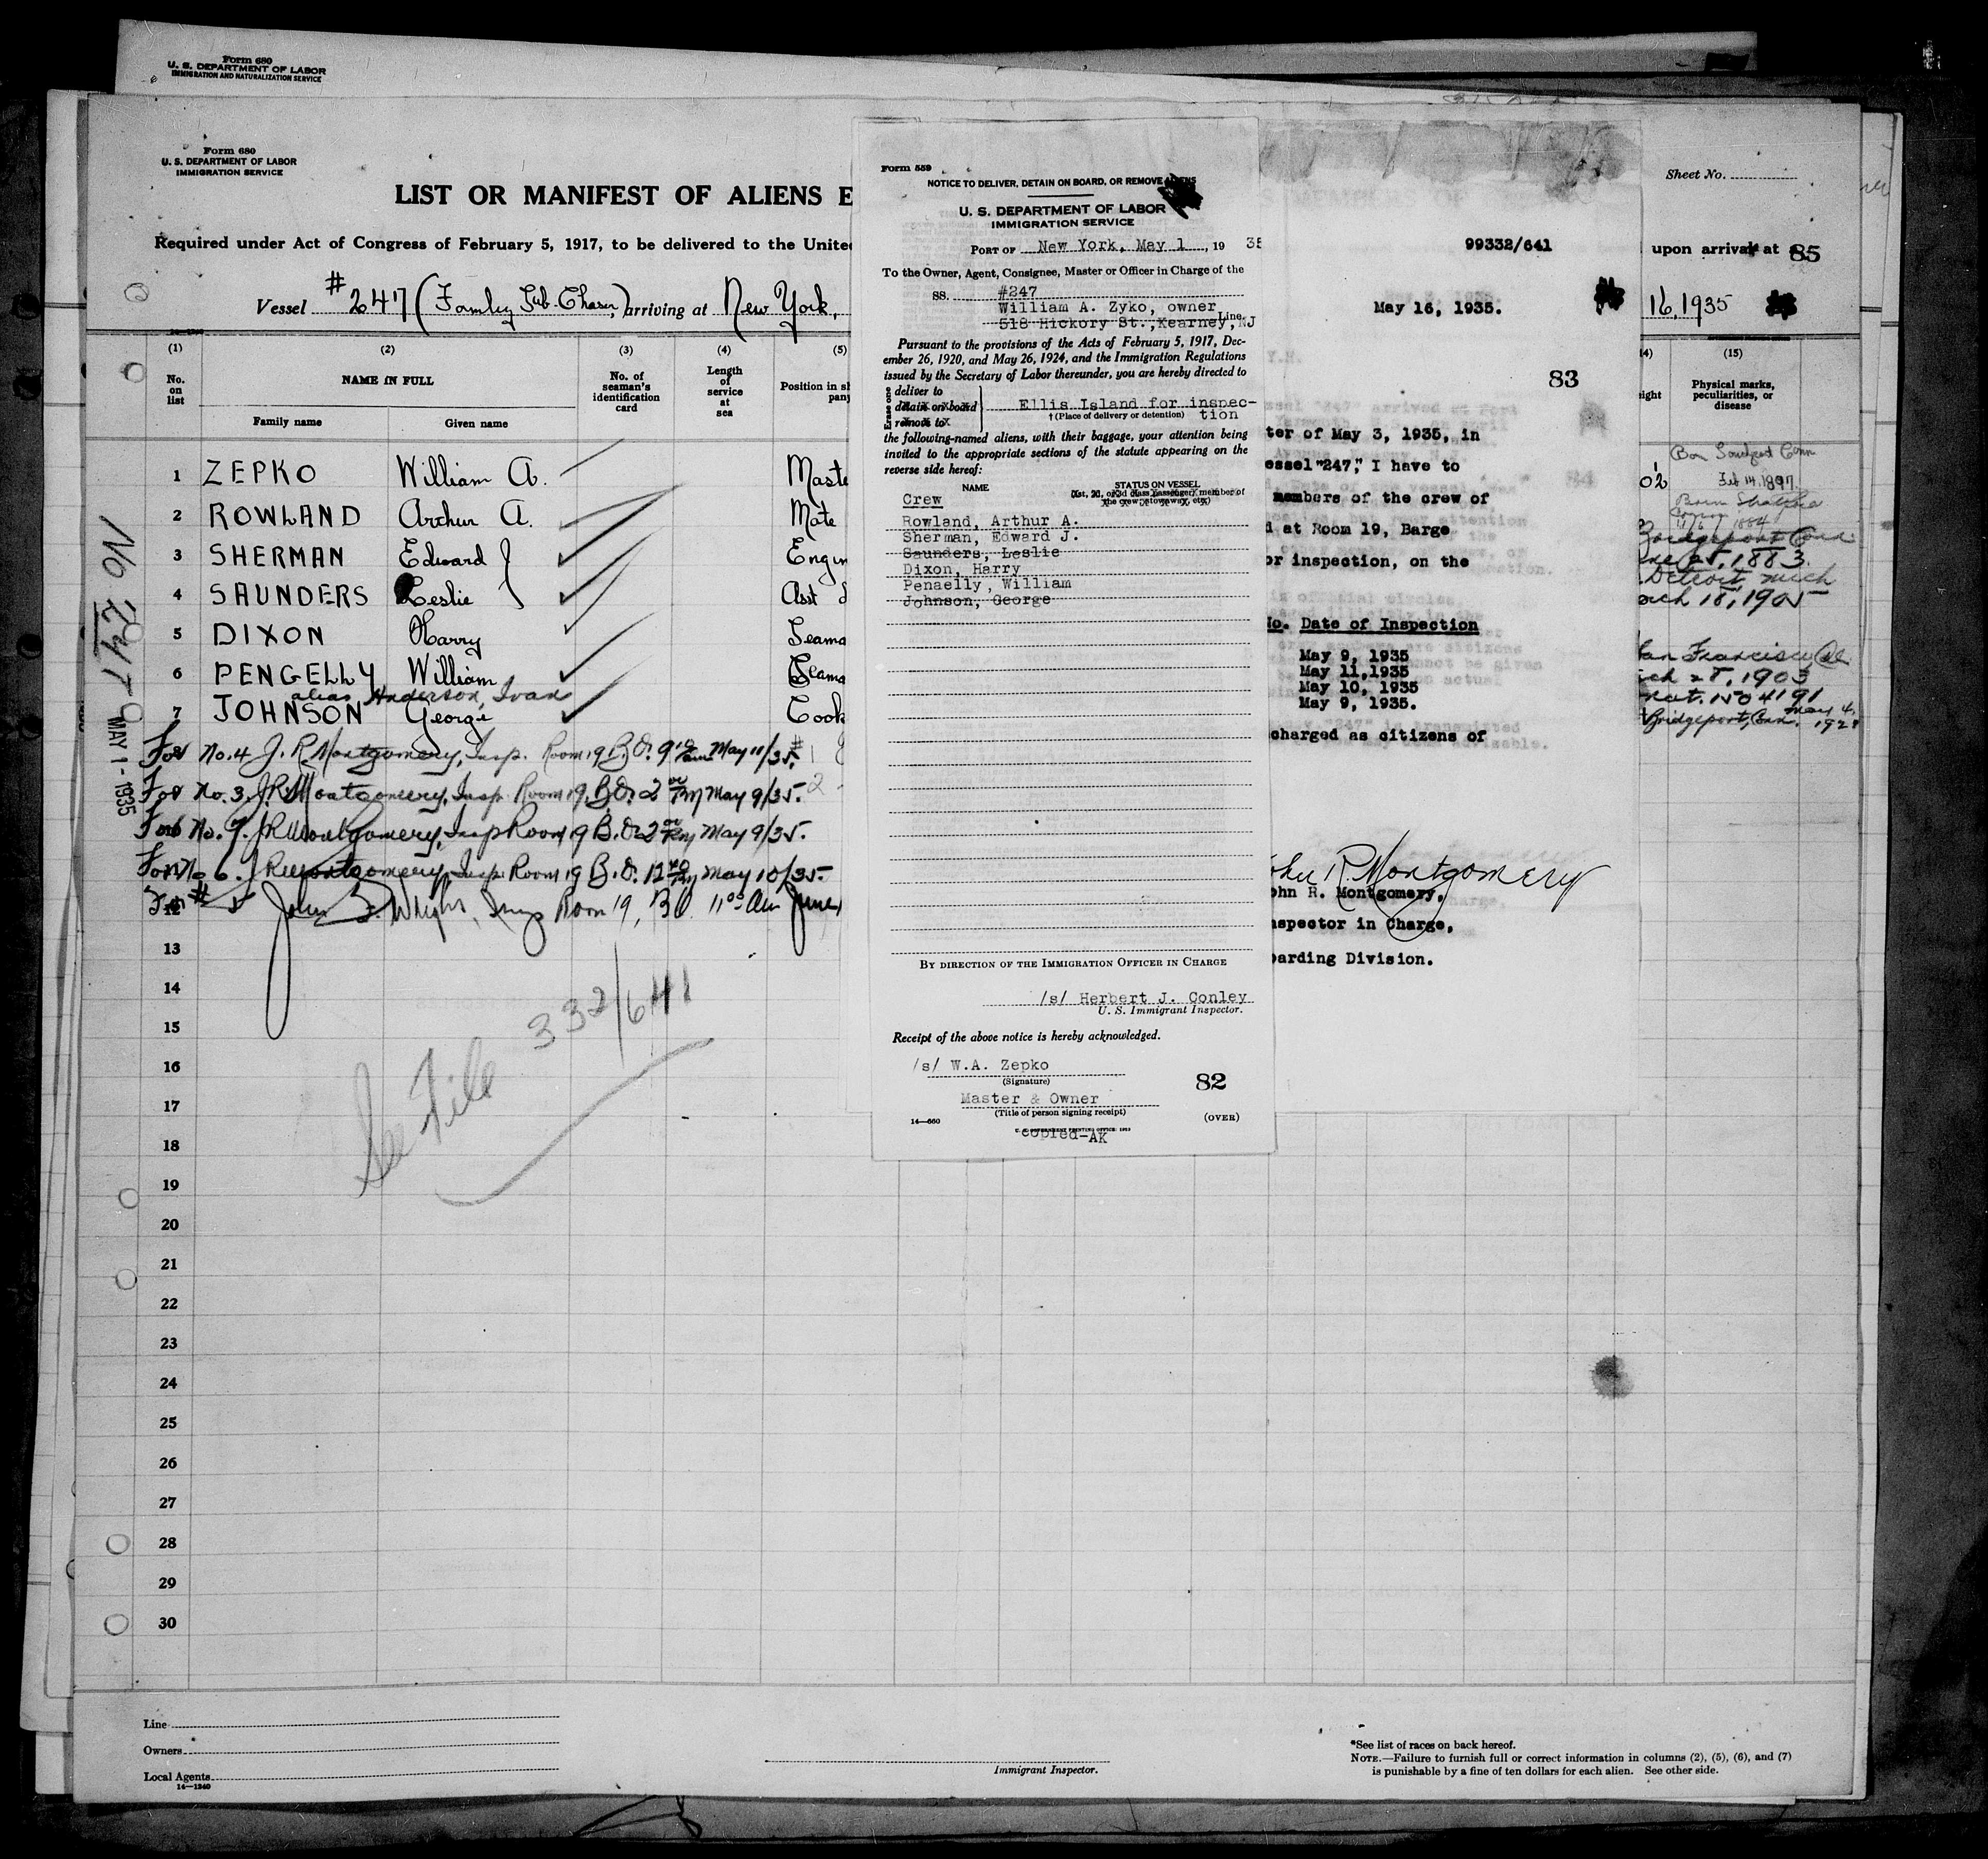 Form 680
U. S. DEPARTMENT OF LABOR
IMMIGRATION AND NATURALIZATION SERVICE
Form 680
U. S. DEPARTMENT OF LABOR
IMMIGRATION SERVICE
LIST OR MANIFEST OF ALIENS E
Required under Act of Congress of February 5, 1917, to be delivered to the Unite
Vessel #247 ( Sub-Chaser) arriving at New York,
(1) (2) (3) (4) (5)
No. on list
NAME IN FULL
Family name Given name
No. of seaman's identification card
Length of service at sea
Position in sh
pany
1 ZEPKO William A. Maste
2 ROWLAND Arthur A. Mate
3 SHERMAN Edward J Engin
4 SAUNDERS Leslie Asst
5 DIXON Harry Seama
6 PENGELLY William Seama
alias Anderson, Ivan
7 JOHNSON George Cook
For No. 4 J. R. Montgomery, Insp. Room 19 B.O. 9 am May 11/35. #1
For No. 3. J. R. Montgomery, Insp. Room 19, B.O. 2 00 PM May 9/35. 2
For No. 7. J R Montgomery, Insp Room 19 B.O. 2 00 PM May 9/35.
For No 6. J R Montgomery, Insp. Room 19 B.O. 12 May 10/35.
For #5 John Wright, Insp Room 19, BO 11 00 Am June
12
13
14
15
16
17
18
19
20
21
22
23
24
25
26
27
28
29
30
No 247
MAY 1 - 1935
See File 332/641
Line
Owners
Local Agents
14—1240
Immigrant Inspector.
*See list of races on back hereof.
NOTE.—Failure to furnish full or correct information in columns (2), (5), (6), and (7)
is punishable by a fine of ten dollars for each alien. See other side.
Form 559
NOTICE TO DELIVER, DETAIN ON BOARD, OR REMOVE ALIENS
U. S. DEPARTMENT OF LABOR
IMMIGRATION SERVICE
PORT OF New York, May 1, 19 35
To the Owner, Agent, Consignee, Master or Officer in Charge of the
SS. #247
William A. Zyko, owner
518 Hickory St., Kearney, NJ Line
Pursuant to the provisions of the Acts of February 5, 1917, Dec-
ember 26, 1920, and May 26, 1924, and the Immigration Regulations
issued by the Secretary of Labor thereunder, you are hereby directed to
Erase one
deliver to
detain on board
remove to
Ellis Island for inspec-
tion
†(Place of delivery or detention)
the following-named aliens, with their baggage, your attention being
invited to the appropriate sections of the statute appearing on the
reverse side hereof:
NAME STATUS ON VESSEL
(1st, 2d, or 3d class passenger, member of
the crew, stowaway, etc.)
Crew
Rowland, Arthur A.
Sherman, Edward J.
Saunders, Leslie
Dixon, Harry
Penaelly, William
Johnson, George
BY DIRECTION OF THE IMMIGRATION OFFICER IN CHARGE
/s/ Herbert J. Conley
U. S. Immigrant Inspector.
Receipt of the above notice is hereby acknowledged.
/s/ W.A. Zepko
(Signature)
82
Master & Owner
(Title of person signing receipt)
14—660
(OVER)
copied-AK
99332/641
May 16, 1935.
83
ter of May 3, 1935, in
essel "247," I have to
members of the crew of
d at Room 19, Barge
or inspection, on the
No. Date of Inspection
May 9, 1935
May 11, 1935
May 10, 1935
May 9, 1935.
charged as citizens of
John R. Montgomery
ohn R. Montgomery,
nspector in Charge,
oarding Division.
Sheet No.
upon arrival at 85
16, 1935
14) (15)
eight
Physical marks, peculiarities, or disease
Born Southport Conn
Feb 14, 1897.
Born Stratford
1884
Bridgeport Conn
25, 1883.
Detroit, Mich
rch 18, 1905
an Francisco, Cal.
rch 28, 1903
nat. No 4191
Bridgeport, Conn. May 4, 192